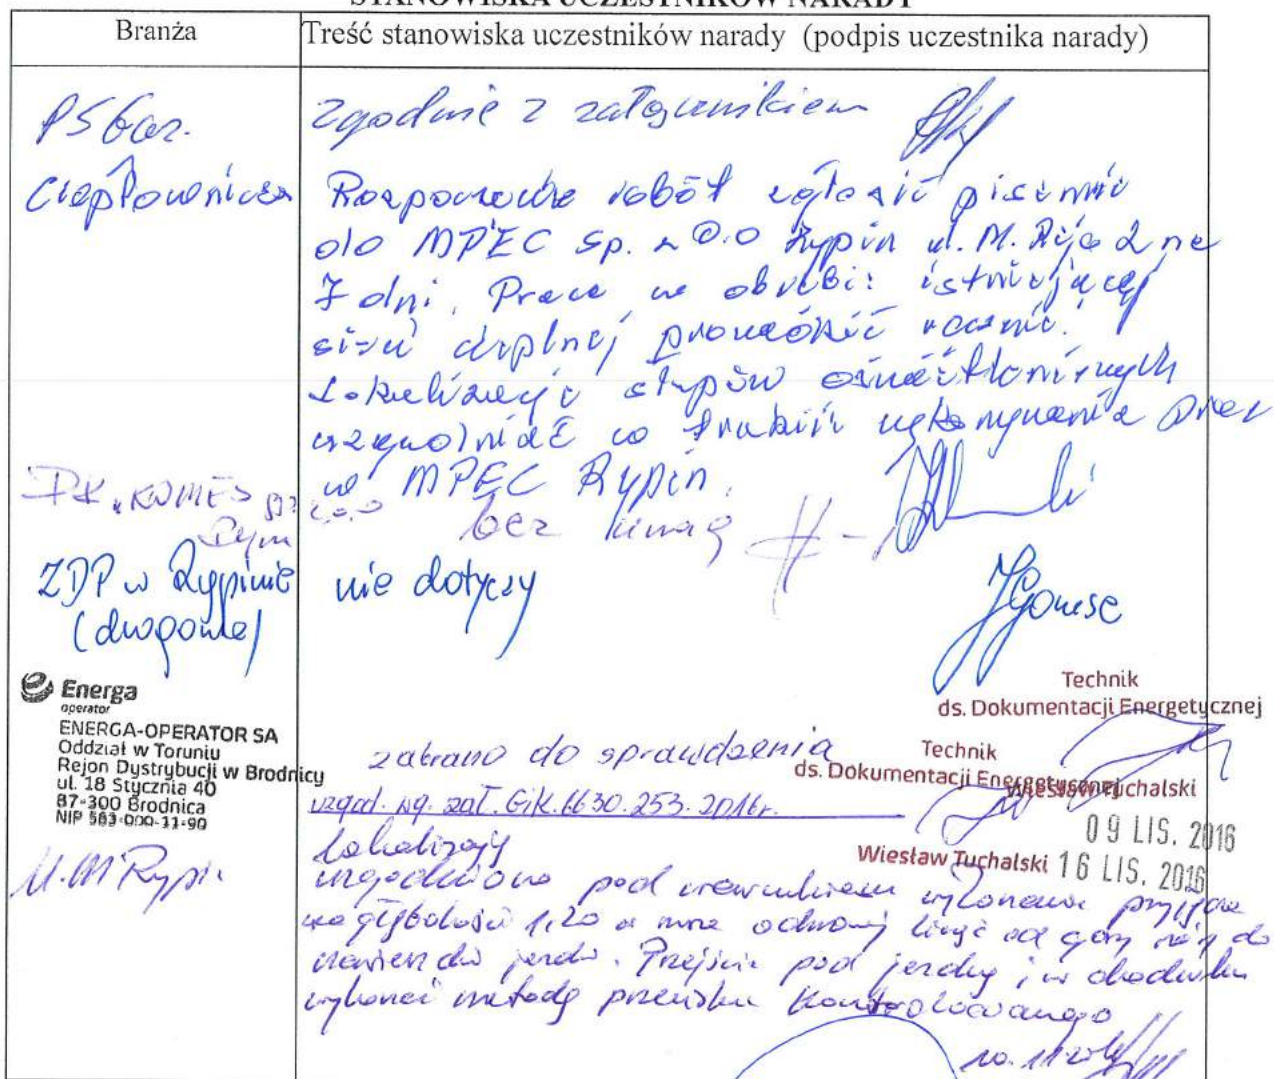 STANOWISKA UCZESTNIKÓW NARADY
Branża
Treść stanowiska uczestników narady (podpis uczestnika narady)
PSGaz.
zgodnie z załącznikiem
Ciepłownicza
Rozpoczęcie robót zgłosić pisemnie
do MPEC Sp. z o.o Rypin ul. M. Reja 2 na
7 dni. Prace w obrębie istniejącej
sieci cieplnej prowadzić ręcznie.
Lokalizację słupów oświetleniowych
uzgodnić w trakcie wykonywania prac
w MPEC Rypin.
PK "KOMES" sp. z o.o
Rypin
bez uwag
ZDP w Rypinie
(drogowe)
nie dotyczy
Energa
operator
ENERGA-OPERATOR SA
Oddział w Toruniu
Rejon Dystrybucji w Brodnicy
ul. 18 Stycznia 40
87-300 Brodnica
NIP 583-000-11-90
Technik
ds. Dokumentacji Energetycznej
Wiesław Tuchalski
09 LIS. 2016
zabrano do sprawdzenia
uzgod. wg. zał. GiK.6630.253.2016r.
Technik
ds. Dokumentacji Energetycznej
Wiesław Tuchalski
16 LIS. 2016
U.M Rypin
Lokalizację
uzgodniono pod warunkiem wykonania
na głębokości 1,20 a rury od góry rury do
jezdni. Przejście pod jezdnią i w chodniku
wykonać metodą przecisku kontrolowanego